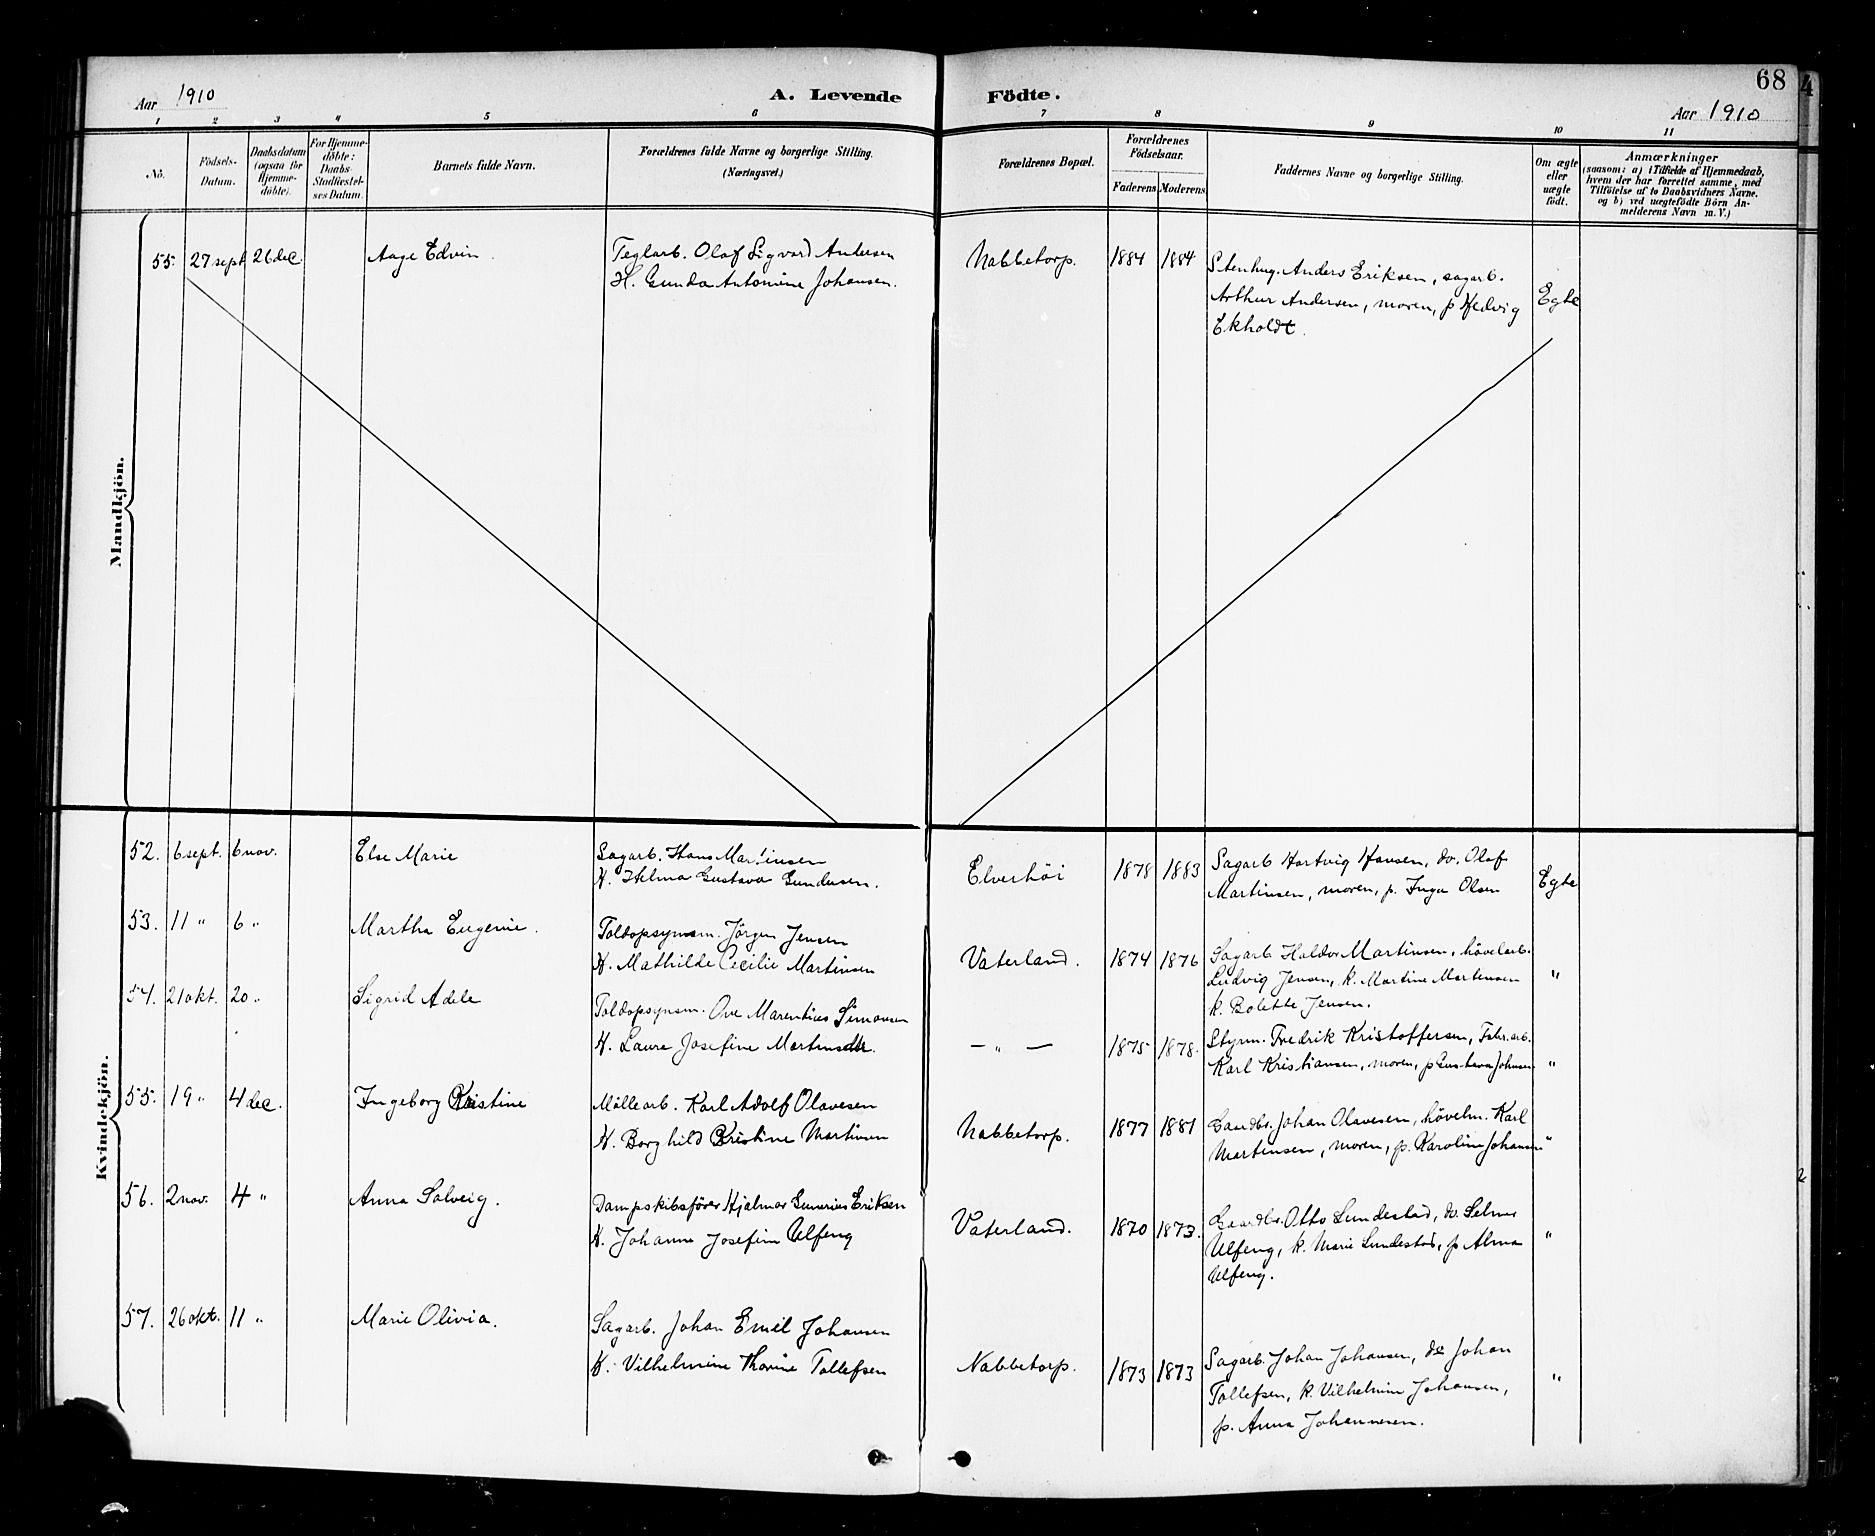 68
4
Aar 1910
A. Levende Födte.
Aar 1910
1 2 3 4 5 6 7 8 9 10 11
No.
Födsels-
Datum.
Daabsdatum
(ogsaa for
Hjemme-
döbte).
For Hjemme-
döbte:
Daabs-
Stadfæstel-
ses Datum.
Barnets fulde Navn.
Forældrenes fulde Navne og borgerlige Stilling.
(Næringsvei.)
Forældrenes Bopæl.
Forældrenes
Födselsaar.
Faderens Moderens
Faddernes Navne og borgerlige Stilling.
Om ægte
eller
uægte
födt.
Anmærkninger
(saasom: a) i Tilfælde af Hjemmedaab,
hvem der har forrettet samme, med
Tilföielse af to Daabsvidners Navne,
og b) ved uægtefödte Börn An-
melderens Navn m. V.)
Mandkjön.
55. 27 sept 26 dec. Aage Edvin.
Teglarb. Olaf Sigvard Andersen
H. Gunda Antonine Johansen.
Nabbetorp. 1884 1884
Stenhug. Anders Eriksen, sagarb.
Arthur Andersen, moren, p Hedvig
Ekholdt.
Egte
Kvindekjön.
52. 6 sept. 6 nov. Else Marie
Sagarb. Hans Martinsen
H. Helma Gustava Gundersen.
Elverhöi 1878 1883
Sagarb Hartvig Hansen, do. Olaf
Martinsen, moren, p. Inga Olsen
Egte
53. 11 " 6 " Martha Eugenie.
Toldopsynsm. Jörgen Jensen
H. Mathilde Cecilie Martinsen
Vaterland. 1874 1876
Sagarb Haldor Martinsen, hövelarb.
Ludvig Jensen, k. Martine Martensen
k. Bolette Jensen.
"
54. 21 okt. 20 " Sigrid Adele
Toldopsynsm. Ove Marentius Simonsen
H. Laura Josefine Martinsdtr.
— " — 1875 1878.
Styrm. Fredrik Kristoffersen, Fabr.arb.
Karl Kristiansen, moren, p Gustava Johnsen
"
55. 19 " 4 dec. Ingeborg Kristine
Möllearb. Karl Adolf Olavesen
H. Borghild Kristine Martinsen
Nabbetorp. 1877 1881
Gaardbr. Johan Olavesen, hövelm. Karl
Martinsen, moren, p. Karoline Johansen
"
56. 2 nov. 4 " Anna Solveig.
Dampskibsförer Hjalmar Gunerius Eriksen
H. Johanne Josefine Ulfeng
Vaterland. 1870 1873.
Gaardbr. Otto Lundestad, do. Selmer
Ulfeng, k. Marie Lundestad, p Alma
Ulfeng.
"
57. 26 okt. 11 " Marie Olivia.
Sagarb. Johan Emil Johansen
H. Vilhelmine Thorine Tollefsen
Nabbetorp. 1873 1873
Sagarb. Johan Johansen, do Johan
Tollefsen, k. Vilhelmine Johansen,
p. Anna Johannesen.
"